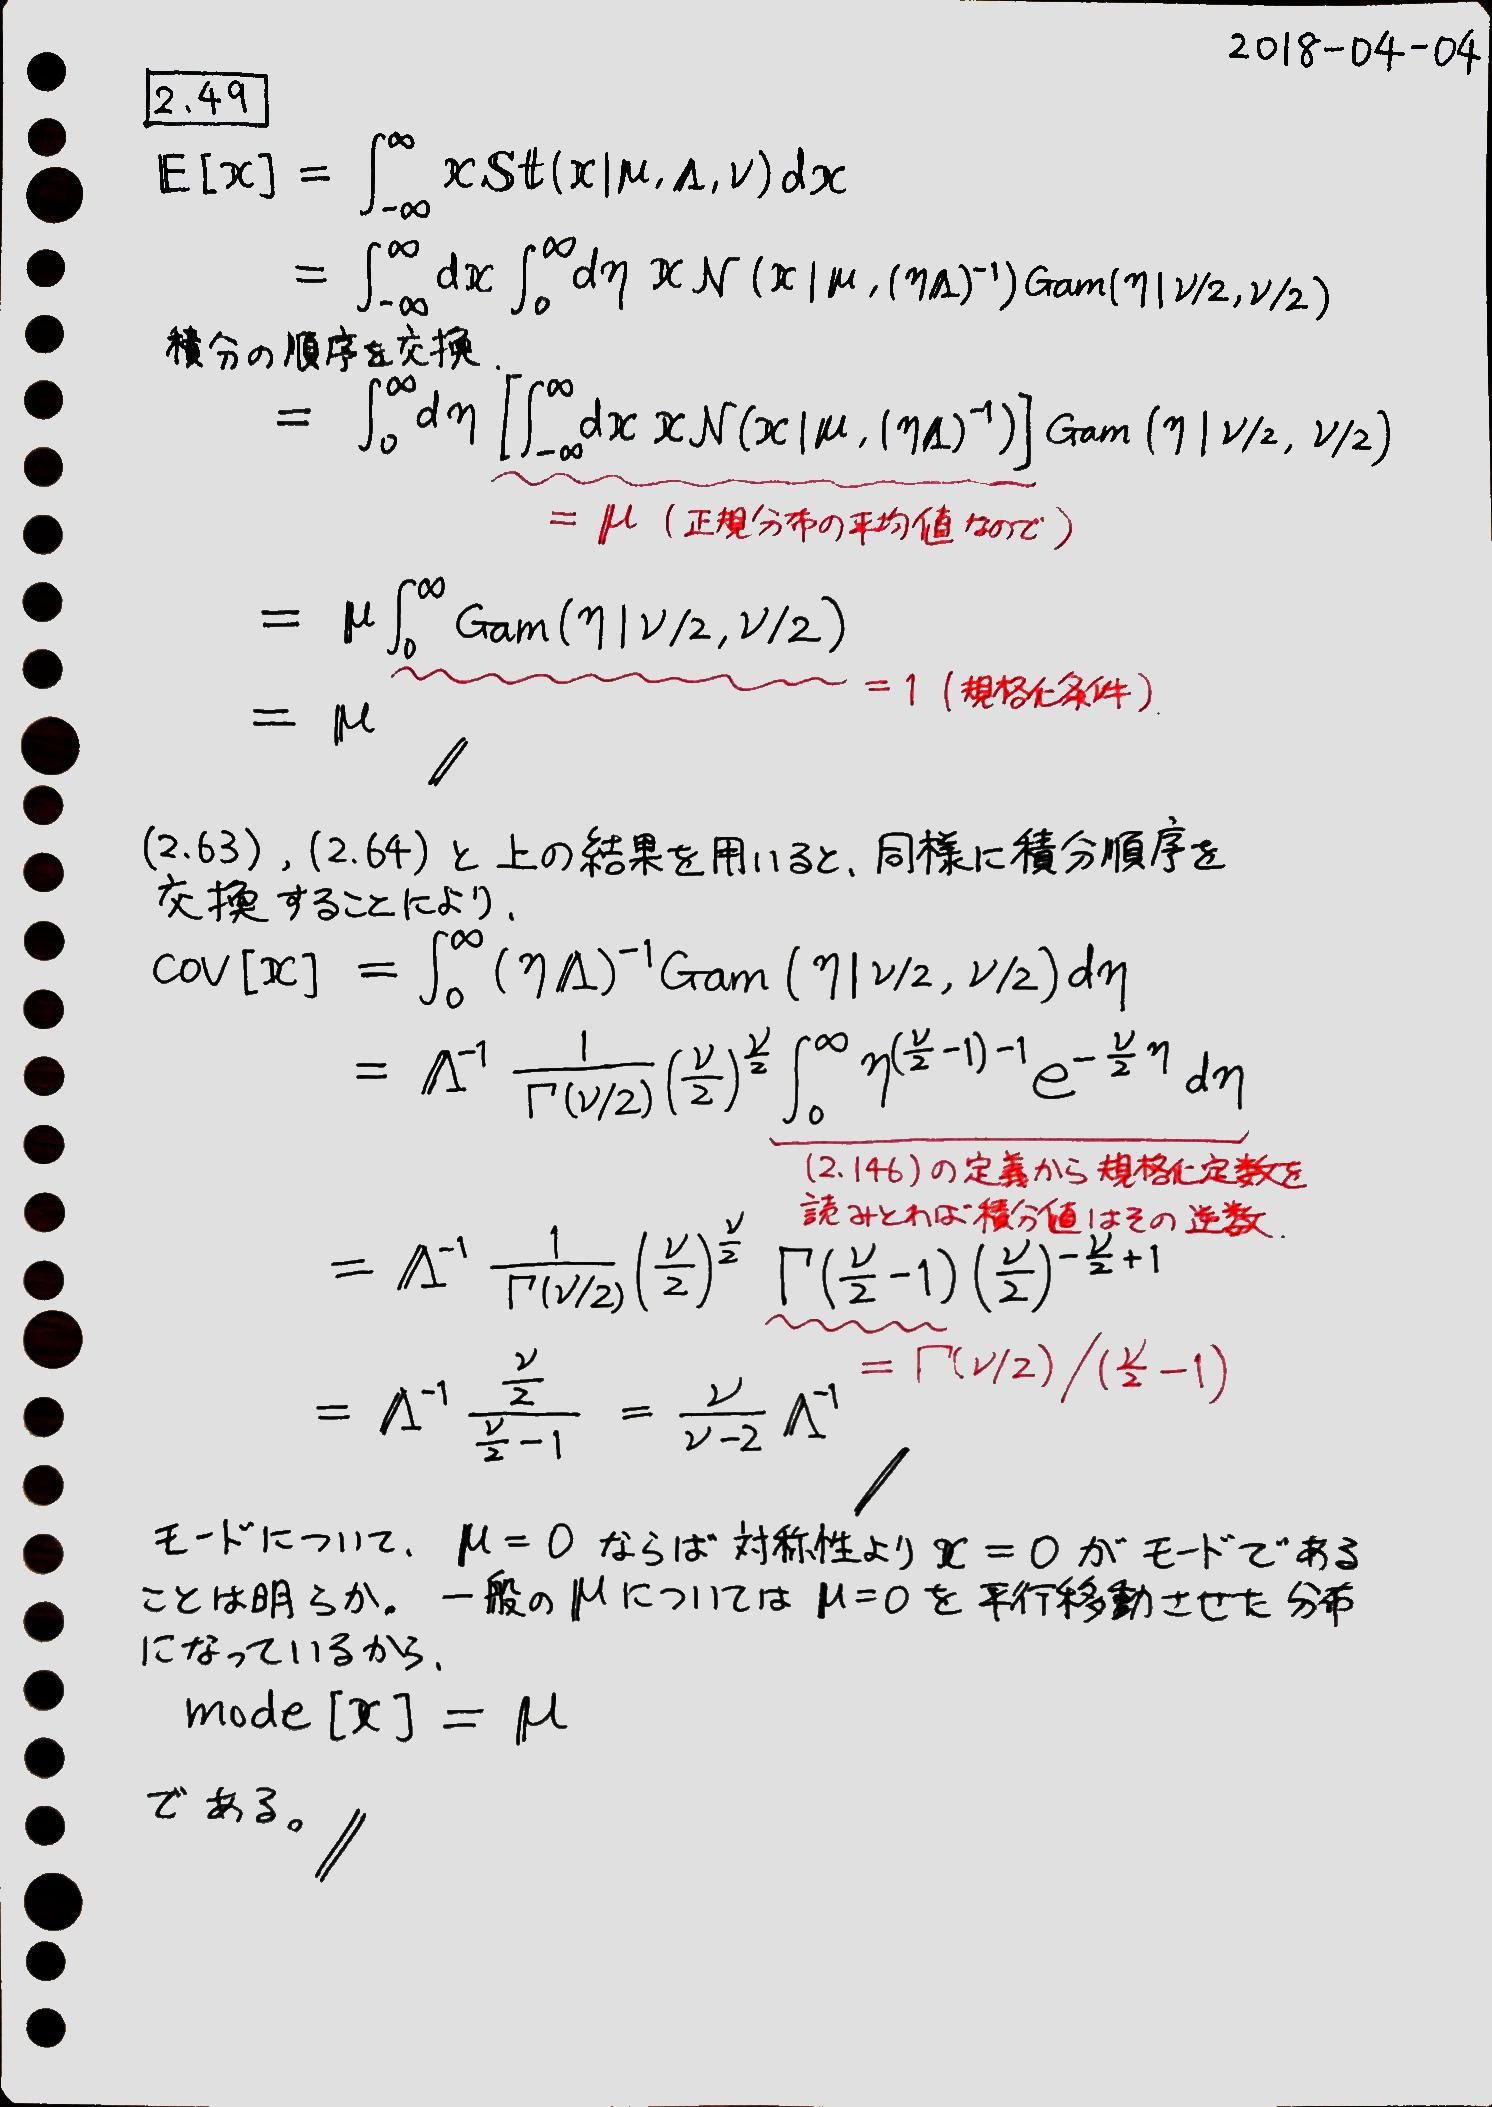 2018-04-04
2.49
𝔼[x] = ∫_{-∞}^{∞} x St(x|μ, Λ, ν) dx
= ∫_{-∞}^{∞} dx ∫_0^∞ dη x N(x|μ, (ηΛ)^{-1}) Gam(η|ν/2, ν/2)
積分の順序を交換.
= ∫_0^∞ dη [∫_{-∞}^{∞} dx x N(x|μ, (ηΛ)^{-1})] Gam(η|ν/2, ν/2)
= μ (正規分布の平均値なので)
= μ ∫_0^∞ Gam(η|ν/2, ν/2)
= 1 (規格化条件).
= μ
(2.63), (2.64) と上の結果を用いると、同様に積分順序を
交換することにより、
cov[x] = ∫_0^∞ (ηΛ)^{-1} Gam(η|ν/2, ν/2) dη
= Λ^{-1} 1/Γ(ν/2) (ν/2)^{ν/2} ∫_0^∞ η^{(ν/2-1)-1} e^{-ν/2 η} dη
(2.146) の定義から規格化定数を
読みとれば積分値はその逆数.
= Λ^{-1} 1/Γ(ν/2) (ν/2)^{ν/2} Γ(ν/2-1) (ν/2)^{-ν/2+1}
= Γ(ν/2)/(ν/2-1)
= Λ^{-1} (ν/2)/(ν/2-1) = ν/(ν-2) Λ^{-1}
モードについて、μ=0 ならば対称性より x=0 がモードである
ことは明らか。一般のμについては μ=0 を平行移動させた分布
になっているから、
mode[x] = μ
である。